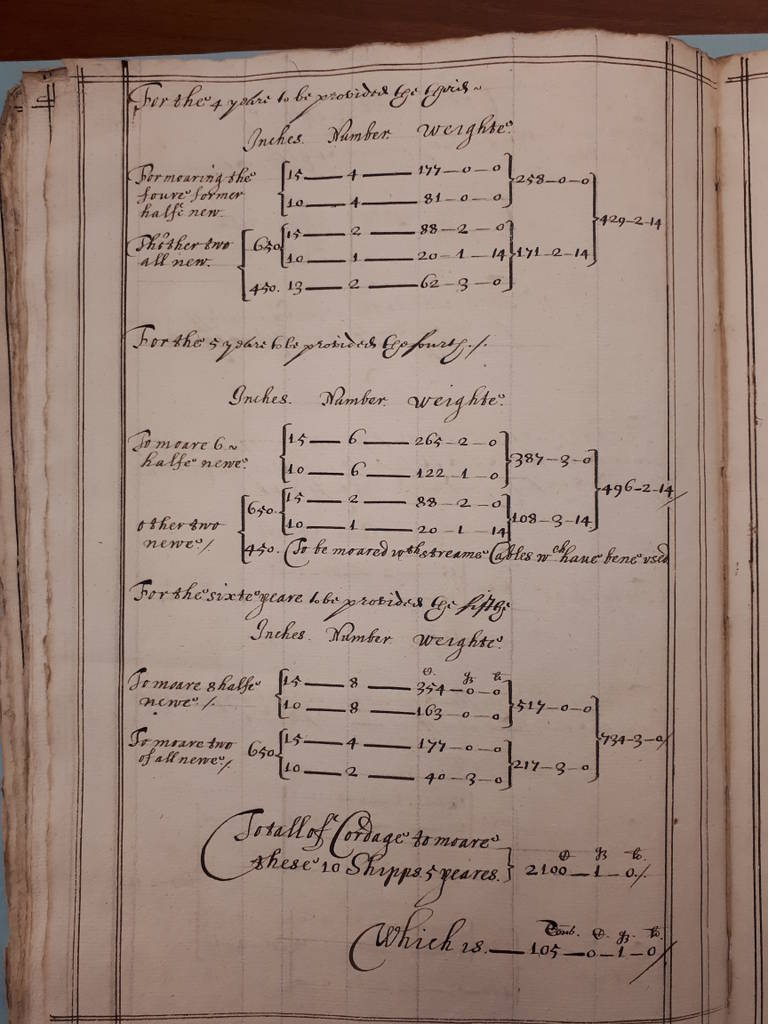 For the 4 yeare to be provided the third
Inches. Number. Weighte.
For moaring the foure former halfe new. 15 — 4 — 177–0–0
10 — 4 — 81–0–0 258–0–0
Th'other two all new. 650 15 — 2 — 88–2–0
10 — 1 — 20–1–14 171–2–14 429–2–14
450. 13 — 2 — 62–3–0
For the 5 yeare to be provided the fourth ./.
Inches. Number. Weighte.
To moare 6 halfe newe. 15 — 6 — 265–2–0
10 — 6 — 122–1–0 387–3–0
other two newe ./ 650. 15 — 2 — 88–2–0
10 — 1 — 20–1–14 108–3–14 496–2–14
450. (To be moared wth streame Cables wch have bene used
For the sixte yeare to be provided the fifthe
Inches. Number. Weighte.
To moare 8 halfe newe ./ 15 — 8 — 354–0–0
10 — 8 — 163–0–0 517–0–0
To moare two of all newe ./ 650 15 — 4 — 177–0–0
10 — 2 — 40–3–0 217–3–0 734–3–0/
Totall of Cordage to moare
these 10 Shipps 5 yeares. 2100–1–0./
Which is. — 105–0–1–0/